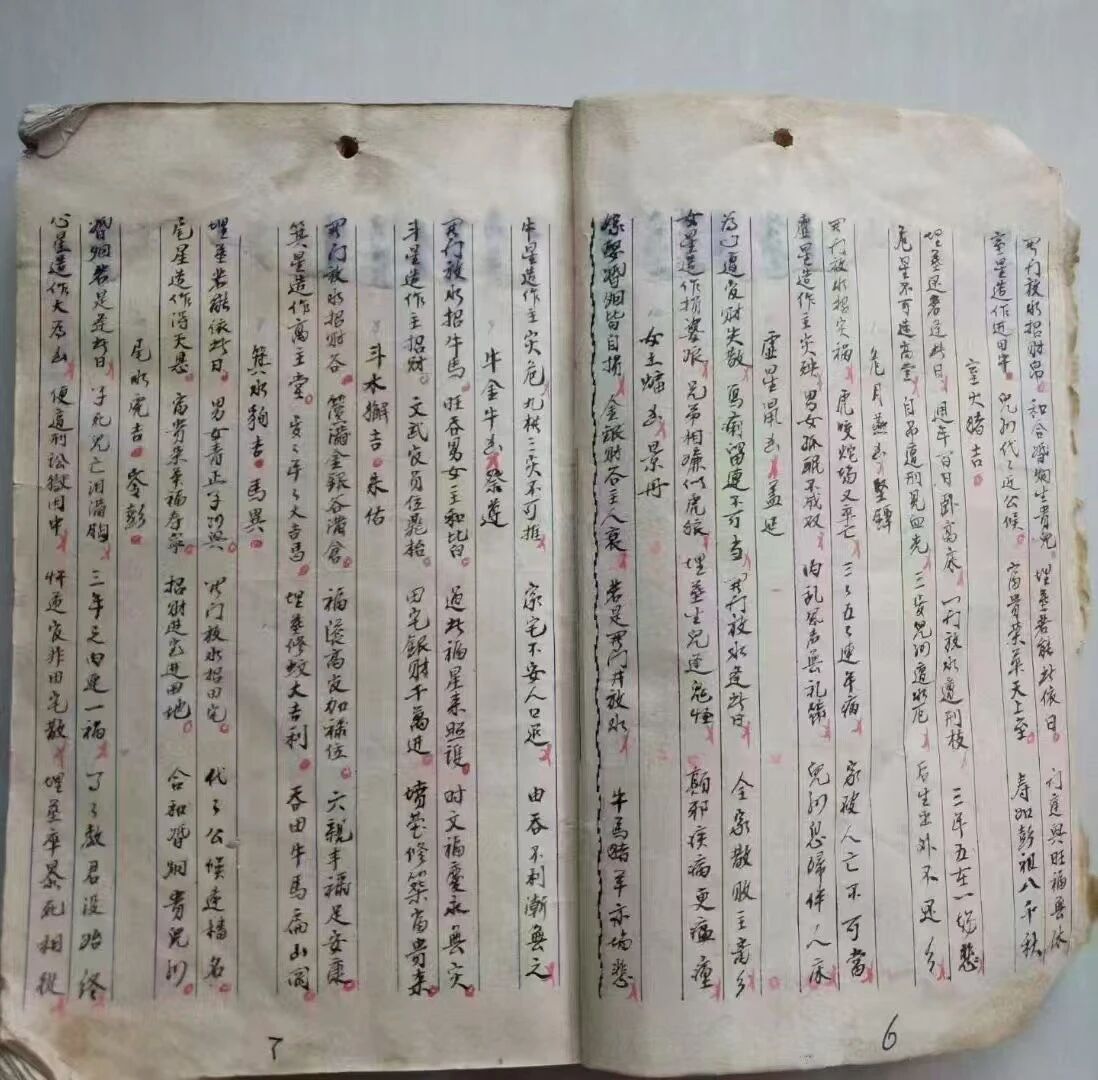 心星造作大为凶 便遭刑讼狱囚中 忤逆官非田宅散 埋葬卒暴死相从
婚姻若是逢此日 子死儿亡泪满胸 三年之内连一祸 了了教君没始终
尾水虎吉 岑彭
尾星造作得天恩 富贵荣华福寿宁 招财进宝进田地 合和婚姻贵儿孙
埋葬若能依此日 男女青正子孙兴 開门放水招田宅 代々公候远播名
箕水豹吉 馬異
箕星造作高主堂 岁々年々大吉昌 埋葬修坟大吉利 吞田牛馬扁山岡
開门放水招财谷 篋满金銀谷满倉 福溢高官加禄位 六親丰禄足安康
斗木獬吉 朱佑
斗星造作主招财 文武官员位鼎抬 田宅銀财千萬进 墳茔修築富貴来
開门放水招牛馬 旺吞男女主和比白 过此福星来照護 时文福慶永無灾
牛金牛凶 祭遵
牛星造作主灾危 九横三灾不可推 家宅不安人口退 由吞不利漸無之
嫁娶婚姻皆自損 金銀财谷主人衰 若是開门并放水 牛馬猪羊亦堪悲
女土蝠凶 景丹
女星造作损婆娘 兄弟相嫌似虎狼 埋葬生児逢 顛邪疾病更瘟瘴
為门遭官财失散 瀉痢留連不可当 開门放水逢此日 全家散败主离乡
虚星鼠凶 盖延
虚星造作主灾殃 男女孤眠不成双 内乱风声無礼節 兒孙息婦伴人床
開门放水招灾禍 虎咬蛇傷又卒亡 三々五々連年病 家被人亡不可當
危月燕凶 堅鐔
危星不可造高堂 自吊遭刑見血光 三岁兒孙遭水厄 后生出外不还乡
埋葬还若逢此日 週年百日卧高床 開门放水遭刑杖 三年五在一场悲
室火猪吉
室星造作进田牛 兒孙代々近公候 富貴荣华天上至 寿如彭祖八千秋
開门放水招财帛 和合婚姻生貴兒 埋葬若能此依日 门庭興旺福無休
7
6